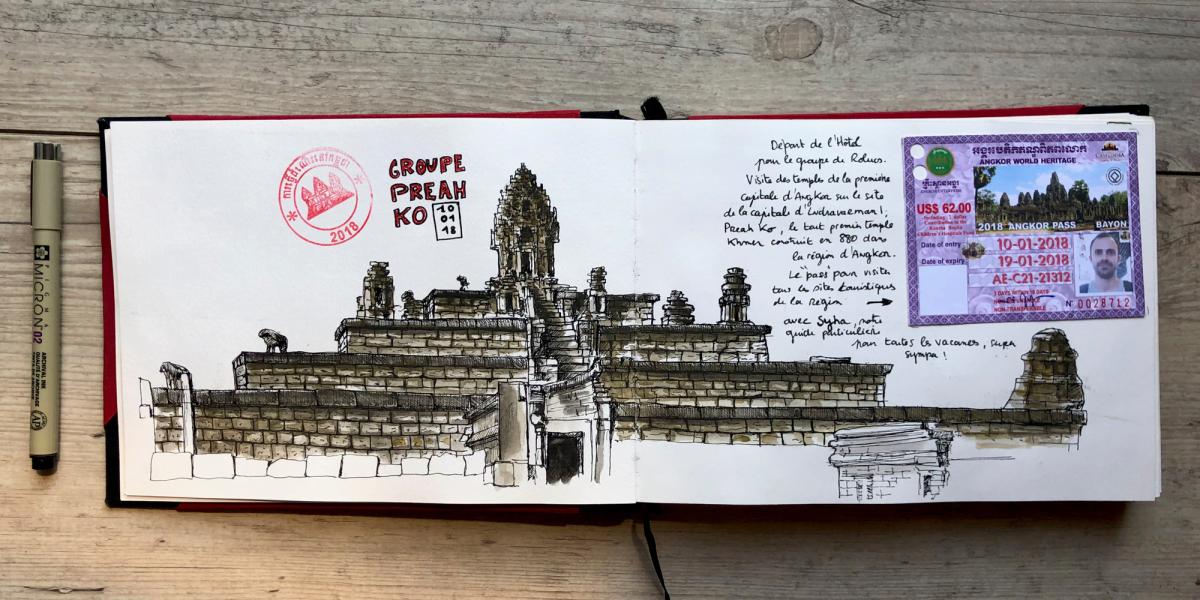 MICRON 02
ARCHIVAL INK
2018
GROUPE
PREAH
KO
10
01
18
Départ de l'Hotel
pour le groupe de Roluos.
Visite des temples de la première
capitale d'Angkor sur le site
de la capitale d'Indravarman I,
Preah Ko, le tout premier temple
Khmer construit en 880 dans
la région d'Angkor.
Le "pass" pour visiter
tous les sites touristiques
de la région
avec notre
guide particulier
pour toutes les vacances, super
sympa !
អង្គរបេតិកភណ្ឌពិភពលោក
ANGKOR WORLD HERITAGE
US$ 62.00
2018 ANGKOR PASS BAYON
Date of entry 10-01-2018
Date of expiry 19-01-2018
AE-C21-21312
NON-TRANSFERABLE
N° 0028712